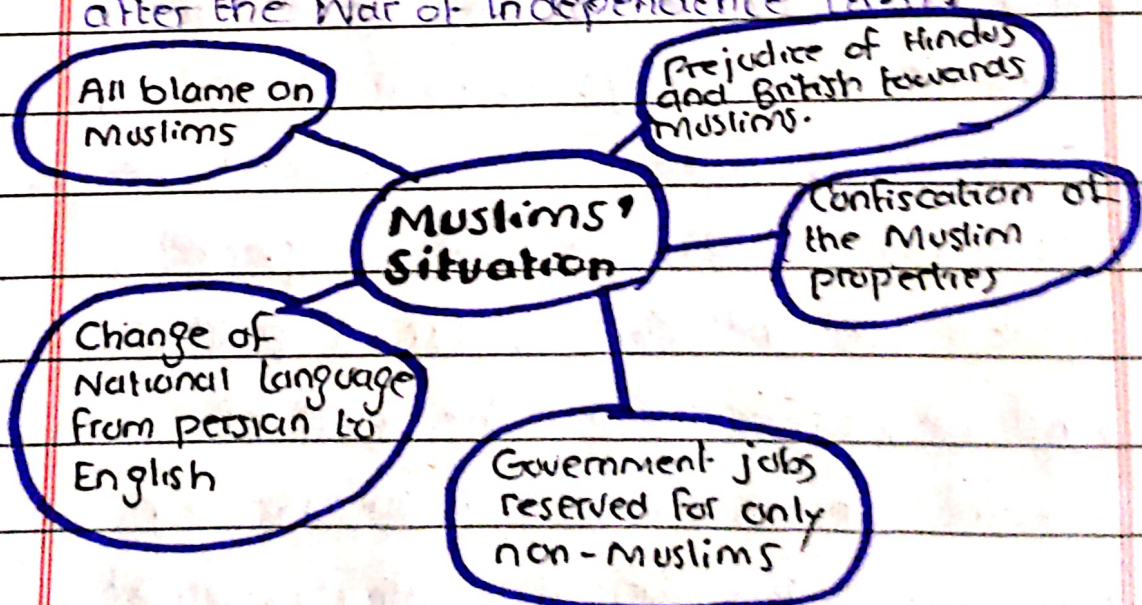 after the War of Independence
All blame on
Muslims
Prejudice of Hindus
and British towards
Muslims.
Muslims'
Situation
Confiscation of
the Muslim
properties
Change of
National Language
from persian to
English
Government jobs
reserved for only
non-Muslims